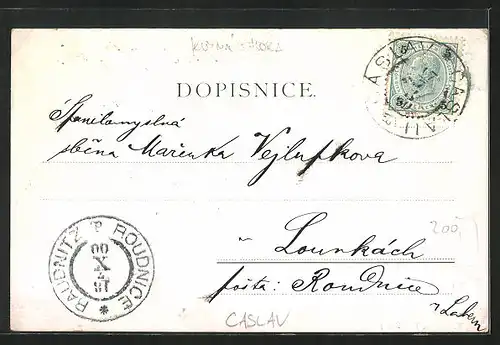 KUTNÁ HORA
DOPISNICE.
ČASLAU ČÁSLAV
Spanilomyslná
slečna Mařenka Vejlupkova
200,-
v Lounkách
pošta: Roudnice
n Labem
RAUDNITZ P. ROUDNICE
00
X
ČASLAV